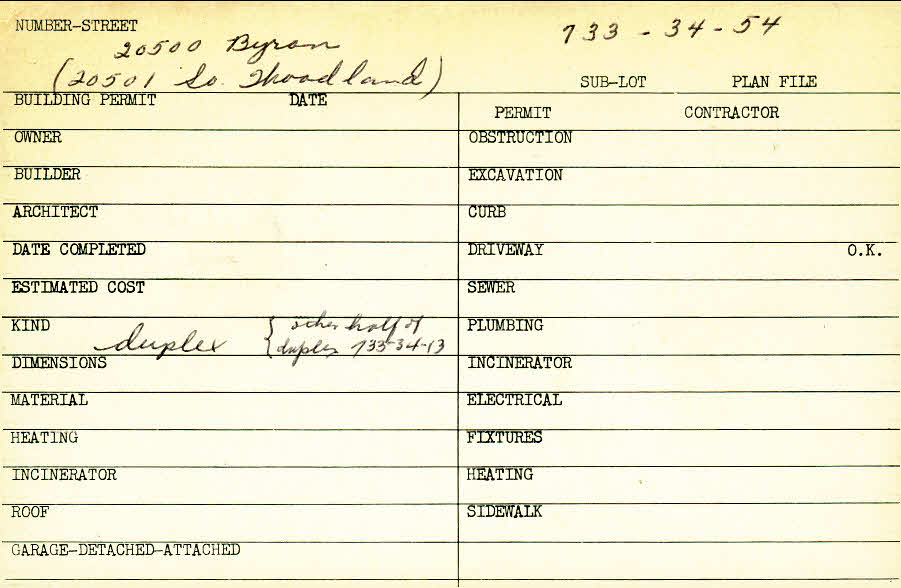 NUMBER-STREET
20500 Byron
733-34-54
(20501 So. Woodland)
SUB-LOT PLAN FILE
BUILDING PERMIT DATE
PERMIT CONTRACTOR
OWNER
OBSTRUCTION
BUILDER
EXCAVATION
ARCHITECT
CURB
DATE COMPLETED
DRIVEWAY O.K.
ESTIMATED COST
SEWER
KIND
duplex
{other half of
duplex 733-34-13
PLUMBING
DIMENSIONS
INCINERATOR
MATERIAL
ELECTRICAL
HEATING
FIXTURES
INCINERATOR
HEATING
ROOF
SIDEWALK
GARAGE-DETACHED-ATTACHED